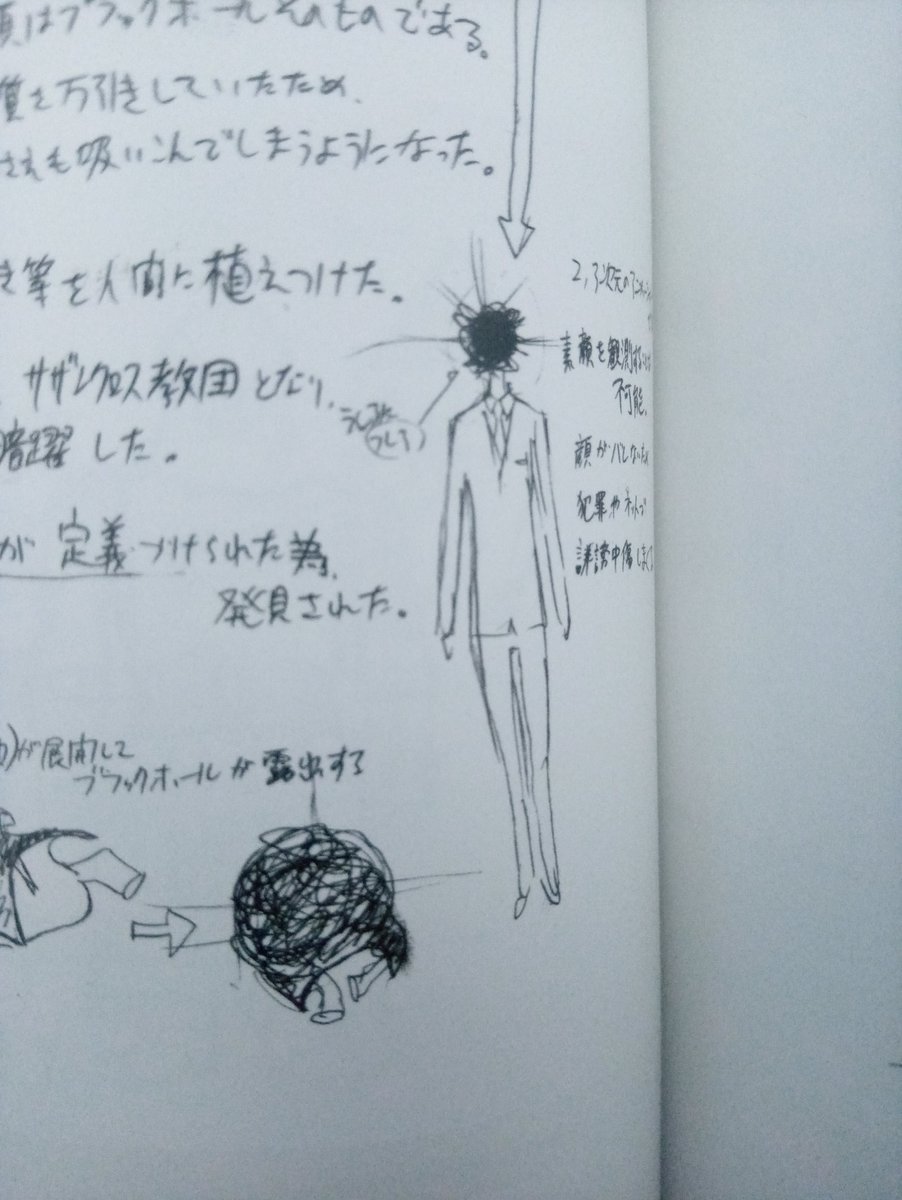 はブラックホールそのものである。
質を万引きしていたため、
さえも吸いこんでしまうようになった。
等を人間に植えつけた。
サザンクロス教団となり、
暗躍した。
が定義づけられた為、
発見された。
が展開して
ブラックホールが露出する
2,3次元の
素顔を観測する
不可能。
顔がバレないため
犯罪やネットで
誹謗中傷しまくり